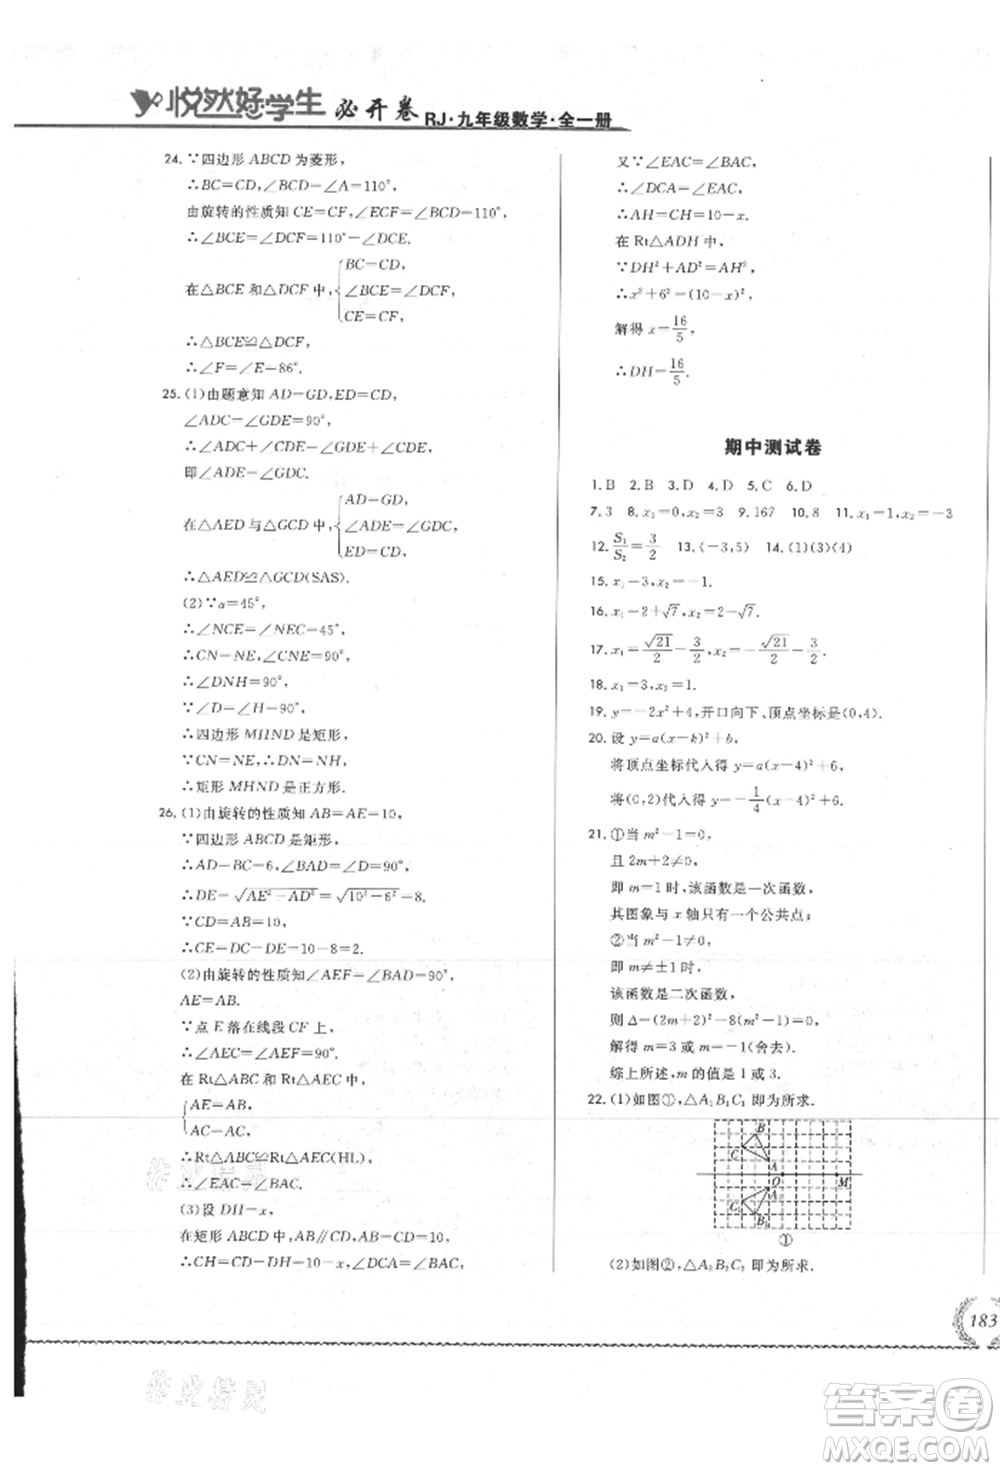 悦然好学生 必开卷 RJ·九年级数学·全一册
24. ∵四边形 ABCD 为菱形，
∴BC=CD，∠BCD=∠A=110°，
由旋转的性质知 CE=CF，∠ECF=∠BCD=110°，
∴∠BCE=∠DCF=110°-∠DCE.
在△BCE 和△DCF 中，{BC=CD，∠BCE=∠DCF，CE=CF，
∴△BCE≌△DCF，
∴∠F=∠E=86°.
25. (1)由题意知 AD=GD，ED=CD，
∠ADC=∠GDE=90°，
∴∠ADC+∠CDE=∠GDE+∠CDE，
即∠ADE=∠GDC.
在△AED 与△GCD 中，{AD=GD，∠ADE=∠GDC，ED=CD，
∴△AED≌△GCD(SAS).
(2)∵a=45°，
∴∠NCE=∠NEC=45°，
∴CN=NE，∠CNE=90°，
∴∠DNH=90°，
∵∠D=∠H=90°，
∴四边形 MHND 是矩形，
∵CN=NE，∴DN=NH，
∴矩形 MHND 是正方形.
26. (1)由旋转的性质知 AB=AE=10，
∵四边形 ABCD 是矩形，
∴AD=BC=6，∠BAD=∠D=90°，
∴DE=√(AE²-AD²)=√(10²-6²)=8.
∵CD=AB=10，
∴CE=DC-DE=10-8=2.
(2)由旋转的性质知∠AEF=∠BAD=90°，
AE=AB.
∵点 E 落在线段 CF 上，
∴∠AEC=∠AEF=90°.
在 Rt△ABC 和 Rt△AEC 中，
{AE=AB，AC=AC，
∴Rt△ABC≌Rt△AEC(HL)，
∴∠EAC=∠BAC.
(3)设 DH=x，
在矩形 ABCD 中，AB∥CD，CD=AB=10，
∴CH=CD-DH=10-x，∠DCA=∠BAC，
又∵∠EAC=∠BAC，
∴∠DCA=∠EAC，
∴AH=CH=10-x.
在 Rt△ADH 中，
∵DH²+AD²=AH²，
∴x²+6²=(10-x)²，
解得 x=16/5，
∴DH=16/5.
期中测试卷
1. B 2. B 3. D 4. D 5. C 6. D
7. 3 8. x₁=0，x₂=3 9. 167 10. 8 11. x₁=1，x₂=-3
12. S₁/S₂=3/2 13. (-3,5) 14. (1)(3)(4)
15. x₁=3，x₂=1.
16. x₁=2+√7，x₂=2-√7.
17. x₁=√21/2-3/2，x₂=-√21/2-3/2.
18. x₁=3，x₂=1.
19. y=-2x²+4，开口向下、顶点坐标是(0,4).
20. 设 y=a(x-h)²+b，
将顶点坐标代入得 y=a(x-4)²+6，
将(0,2)代入得 y=-1/4(x-4)²+6.
21. ①当 m²-1=0，
且 2m+2≠0，
即 m=1 时，该函数是一次函数，
其图象与 x 轴只有一个公共点；
②当 m²-1≠0，
即 m≠±1 时，
该函数是二次函数，
则 Δ=(2m+2)²-8(m²-1)=0，
解得 m=3 或 m=-1(舍去).
综上所述，m 的值是 1 或 3.
22. (1)如图①，△A₁B₁C₁ 即为所求.
B
C
A
O
M
A₁
C₁
B₁
①
(2)如图②，△A₂B₂C₂ 即为所求.
183
作业精灵
作业精灵
答案圈
MXQE.COM